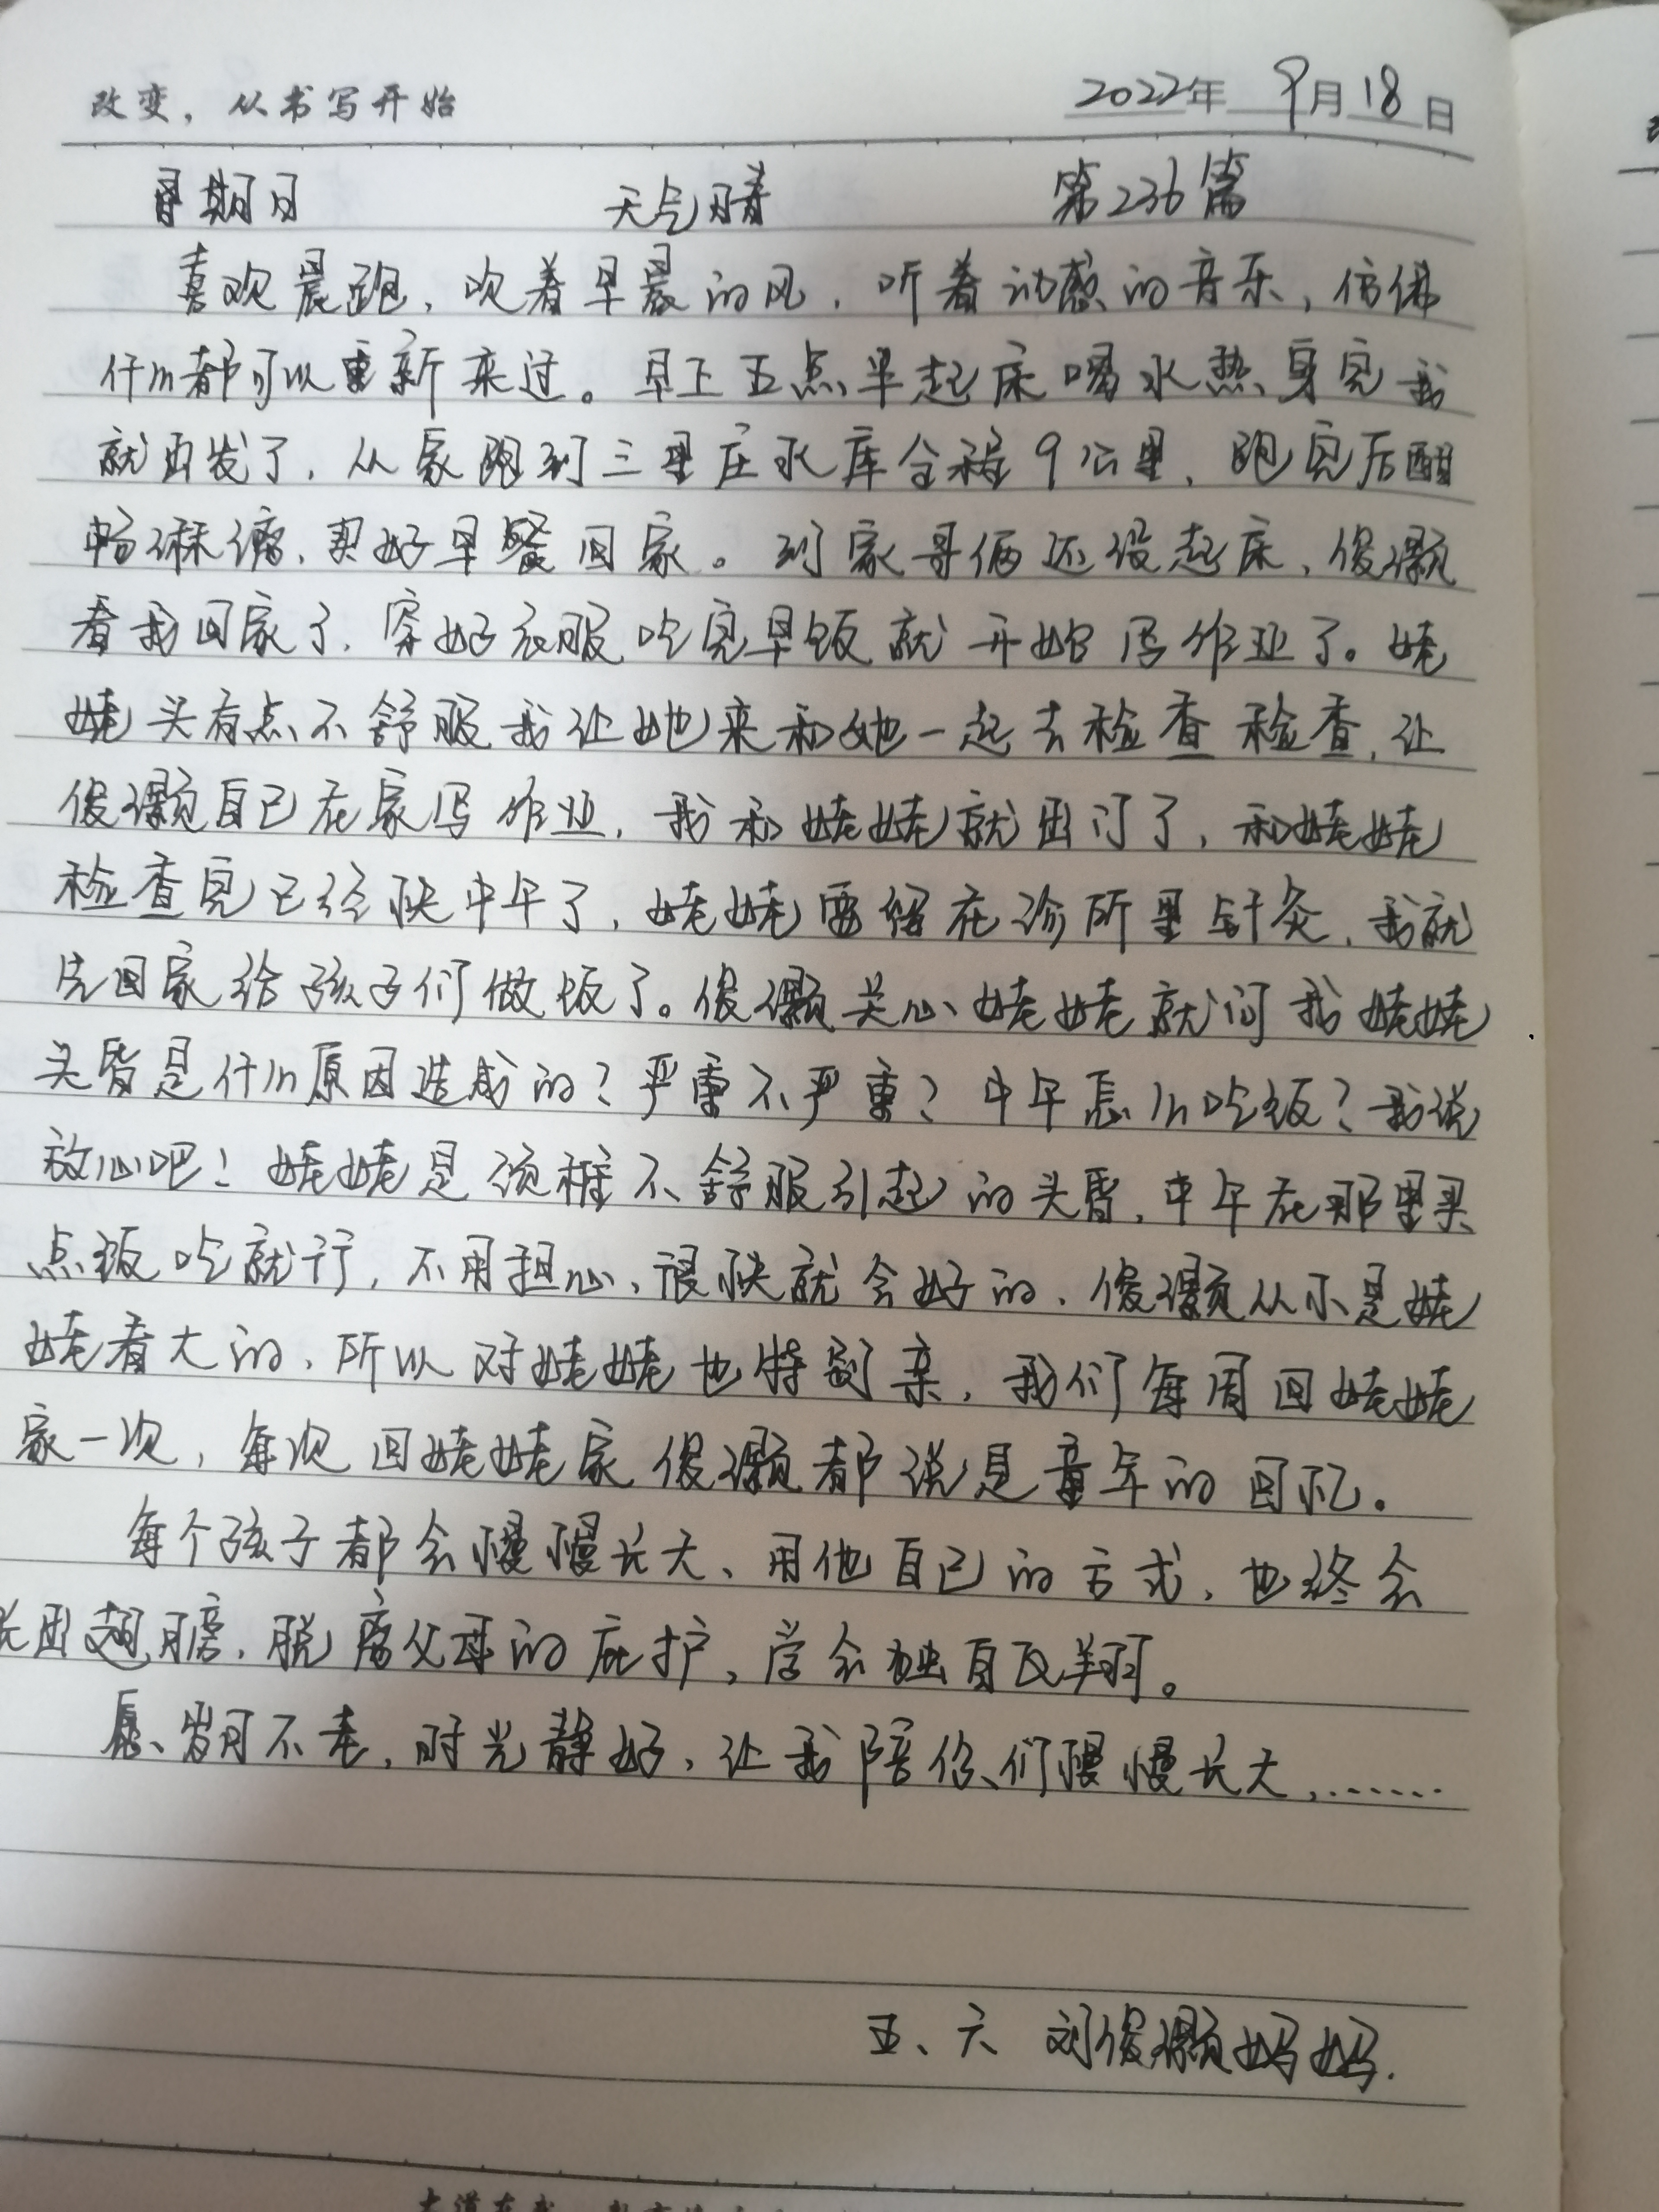 改变，从书写开始
2022年 9月18日
星期日 天气晴 第236篇
喜欢晨跑，吹着早晨的风，听着动感的音乐，仿佛
什么都可以重新来过。早上五点半起床喝水热身完我
就出发了，从家跑到三里庄水库全程9公里，跑完后酣
畅淋漓，买好早餐回家。到家哥俩还没起床，俊灏
看我回家了，穿好衣服吃完早饭就开始写作业了。姥
姥头有点不舒服我让她来和她一起去检查检查，让
俊灏自己在家写作业，我和姥姥就出门了，和姥姥
检查完已经快中午了，姥姥要留在诊所里针灸，我就
先回家给孩子们做饭了。俊灏关心姥姥就问我姥姥
头昏是什么原因造成的？严重不严重？中午怎么吃饭？我说
放心吧！姥姥是颈椎不舒服引起的头昏，中午在那里买
点饭吃就行，不用担心，很快就会好的，俊灏从小是姥
姥看大的，所以对姥姥也特别亲，我们每周回姥姥
家一次，每次回姥姥家俊灏都说是童年的回忆。
每个孩子都会慢慢长大、用他自己的方式，也终会
长出翅膀，脱离父母的庇护，学会独自飞翔。
愿、岁月不老，时光静好，让我陪你们慢慢长大，……
五、六 刘俊灏妈妈.